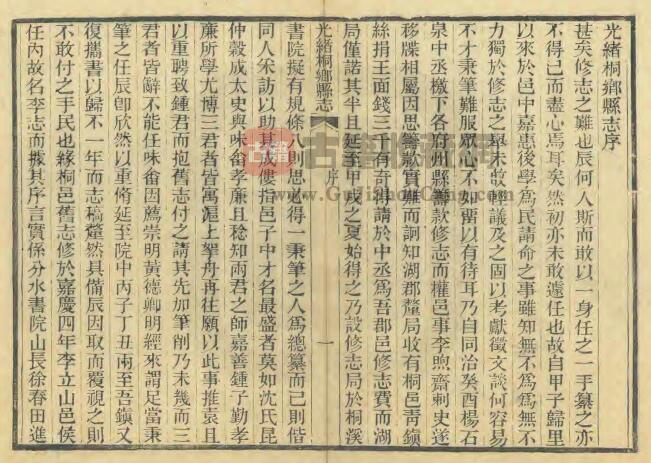 光緒桐鄉縣志序
甚矣修志之難也辰何人斯而敢以一身任之一手纂之亦
不得已而盡心焉耳矣然初亦未敢遽任也故自甲子歸里
以來於邑中嘉惠後學爲民請命之事雖知無不爲爲無不
力獨於修志之舉未敢輕議及之固以考獻徵文談何容易
不才秉筆難服眾心不如畱以有待耳乃自同治癸酉楊石
泉中丞檄下各府州縣籌款修志而權邑事李煦齋刺史遂
移牒相屬因思籌款實難而詗知湖郡釐局收有桐邑靑鎭
絲捐王面錢三千有奇得請於中丞爲吾郡邑修志費而湖
局僅諾其半且延至甲戌之夏始得之乃設修志局於桐溪
光緒桐鄉縣志
序
一
書院擬有規條八則思延得一秉筆之人爲總纂而已則偕
同人采訪以助其成僂指邑子中才名最盛者莫如沈氏昆
仲榖成太史與味畬孝廉且稔知兩君之師嘉善鍾子勤孝
廉所學尤博三君者皆寓滬上挐舟再往願以此事推袁且
以重聘致鍾君而抱舊志付之請其先加筆削乃未幾而三
君者皆辭不能任味畬因薦崇明黃德卿明經來謂足當秉
筆之任辰卽欣然以重脩延至院中丙子丁丑兩至吾鎭又
復攜書以歸不一年而志稿釐然具備辰因取而覆視之則
不敢付之手民也緣桐邑舊志修於嘉慶四年李立山邑侯
任內故名李志而據其序言實係分水書院山長徐春田進